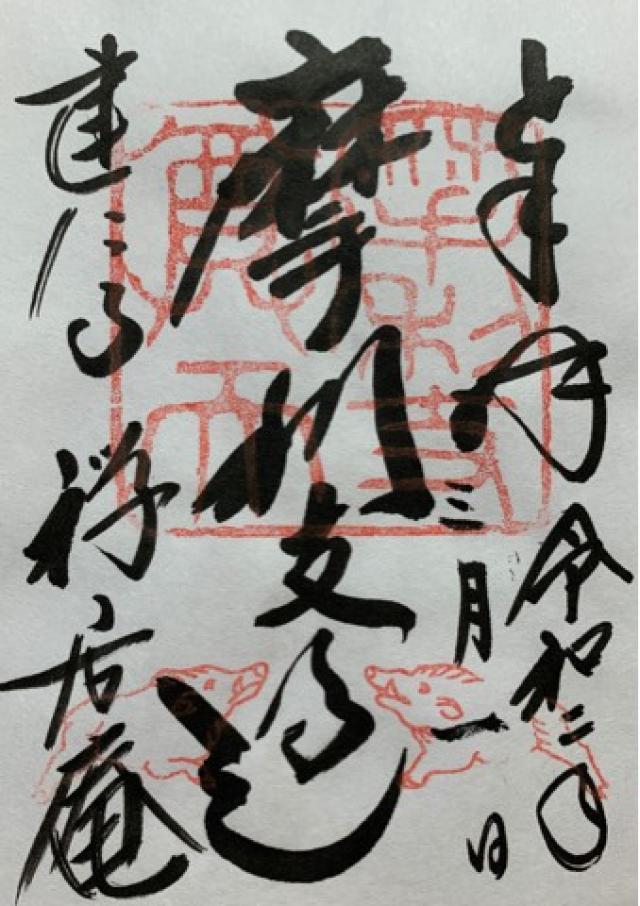 奉拝 令和二年
三月一日
摩利支
建仁寺 禅居庵